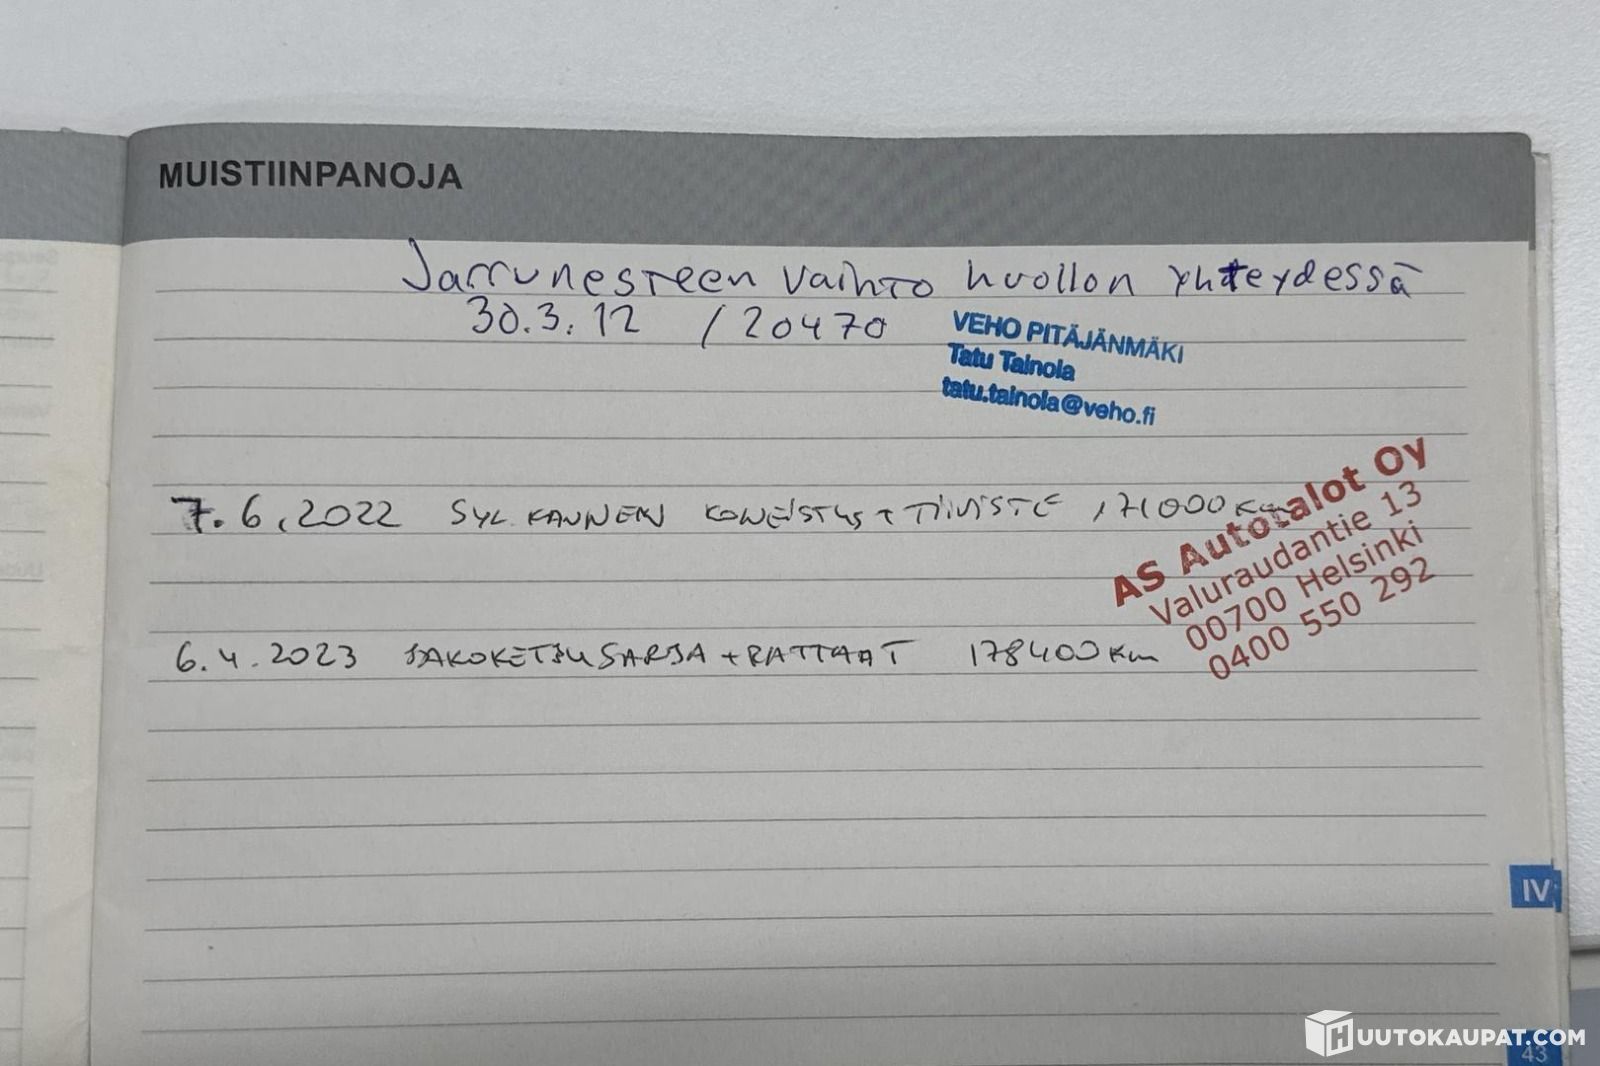 MUISTIINPANOJA
Jarrunesteen vaihto huollon yhteydessä
30.3.12 / 20470
VEHO PITÄJÄNMÄKI
Tatu Tainola
tatu.tainola@veho.fi
7.6.2022 SYL. KANNEN KONEISTUS + TIIVISTE 171000 km
AS Autotalot Oy
Valuraudantie 13
00700 Helsinki
0400 550 292
6.4.2023 JAKOKETJUSARJA + RATTAAT 178400 km
IV
43
HUUTOKAUPAT.COM